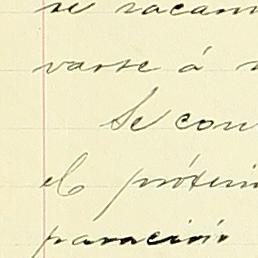 se sacan
varse á
Se con
el próxim
paración